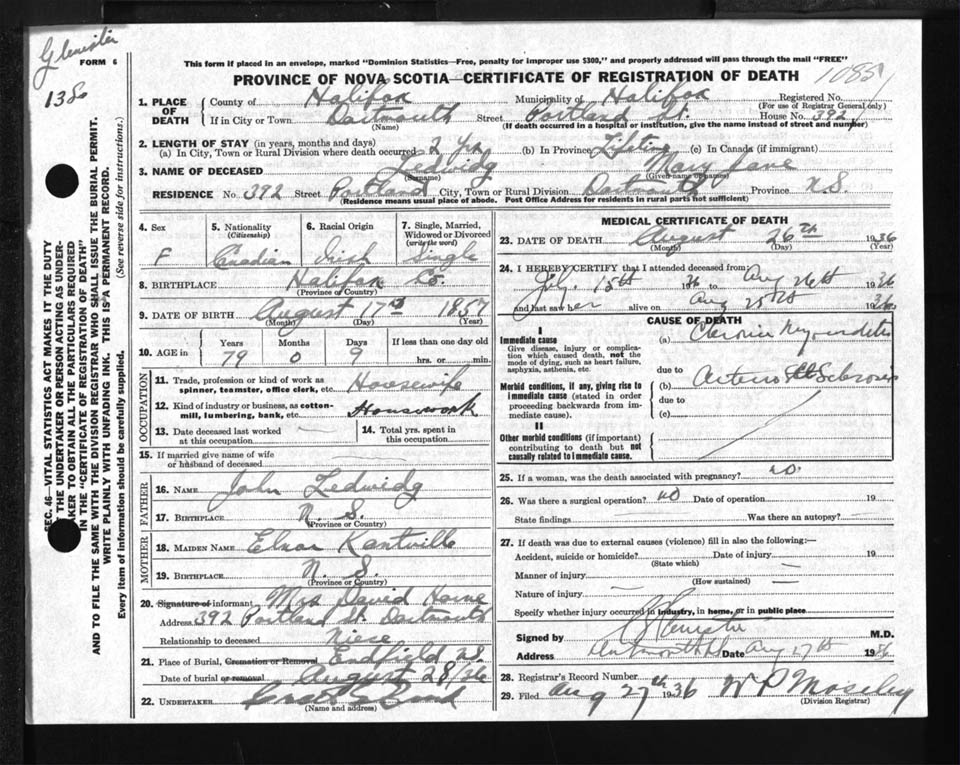 Glenister
FORM 6
1386
This form if placed in an envelope, marked "Dominion Statistics—Free, penalty for improper use $300," and properly addressed will pass through the mail "FREE"
PROVINCE OF NOVA SCOTIA—CERTIFICATE OF REGISTRATION OF DEATH
1085
1. PLACE OF DEATH
County of Halifax Municipality of Halifax Registered No.
(For use of Registrar General only)
If in City or Town Dartmouth Street Portland St. House No. 392
(Name) (If death occurred in a hospital or institution, give the name instead of street and number)
2. LENGTH OF STAY (in years, months and days)
(a) In City, Town or Rural Division where death occurred 2 yrs (b) In Province Lifetime (c) In Canada (if immigrant)
3. NAME OF DECEASED Ledwidg Mary Jane
(Surname) (Given name or names)
RESIDENCE No. 392 Street Portland City, Town or Rural Division Dartmouth Province N.S.
(Residence means usual place of abode. Post Office Address for residents in rural parts not sufficient)
4. Sex
F
5. Nationality
(Citizenship)
Canadian
6. Racial Origin
Irish
7. Single, Married, Widowed or Divorced
(write the word)
Single
8. BIRTHPLACE Halifax Co.
(Province or Country)
9. DATE OF BIRTH August 17th 1857
(Month) (Day) (Year)
10. AGE in
Years Months Days If less than one day old
79 0 9 hrs. or min.
OCCUPATION
11. Trade, profession or kind of work as spinner, teamster, office clerk, etc. Housewife
12. Kind of industry or business, as cotton-mill, lumbering, bank, etc. Housework
13. Date deceased last worked at this occupation
14. Total yrs. spent in this occupation
15. If married give name of wife or husband of deceased
FATHER
16. NAME John Ledwidg
17. BIRTHPLACE N. S.
(Province or Country)
MOTHER
18. MAIDEN NAME Elnor Kantville
19. BIRTHPLACE N. S
(Province or Country)
20. Signature of informant Mrs David Horne
Address 392 Portland St. Dartmouth
Relationship to deceased Niese
21. Place of Burial, Cremation or Removal Endfield N.S.
Date of burial or removal August 28/36
22. UNDERTAKER
(Name and address)
MEDICAL CERTIFICATE OF DEATH
23. DATE OF DEATH August 26th 1936
(Month) (Day) (Year)
24. I HEREBY CERTIFY that I attended deceased from
July 15th 36 to Aug 26th 1936
and last saw her alive on Aug 25th 1936
CAUSE OF DEATH
I
Immediate cause
Give disease, injury or complication which caused death, not the mode of dying, such as heart failure, asphyxia, asthenia, etc.
(a) Chronic Myocarditis
due to
Morbid conditions, if any, giving rise to immediate cause (stated in order proceeding backwards from immediate cause).
(b) Arterio Sclerosis
due to
(c)
II
Other morbid conditions (if important) contributing to death but not causally related to immediate cause.
25. If a woman, was the death associated with pregnancy? no.
26. Was there a surgical operation? no Date of operation 19
State findings Was there an autopsy?
27. If death was due to external causes (violence) fill in also the following:—
Accident, suicide or homicide? Date of injury 19
(State which)
Manner of injury
(How sustained)
Nature of injury
Specify whether injury occurred in industry, in home, or in public place
Signed by Glenister M.D.
Address Dartmouth Date Aug 27th 1936
28. Registrar's Record Number
29. Filed Aug 27th 1936
(Division Registrar)
SEC. 46—VITAL STATISTICS ACT MAKES IT THE DUTY
OF THE UNDERTAKER OR PERSON ACTING AS UNDER-
TAKER TO OBTAIN ALL THE PARTICULARS REQUIRED
IN THE "CERTIFICATE OF REGISTRATION OF DEATH"
AND TO FILE THE SAME WITH THE DIVISION REGISTRAR WHO SHALL ISSUE THE BURIAL PERMIT.
WRITE PLAINLY WITH UNFADING INK. THIS IS A PERMANENT RECORD.
Every item of information should be carefully supplied. (See reverse side for instructions.)